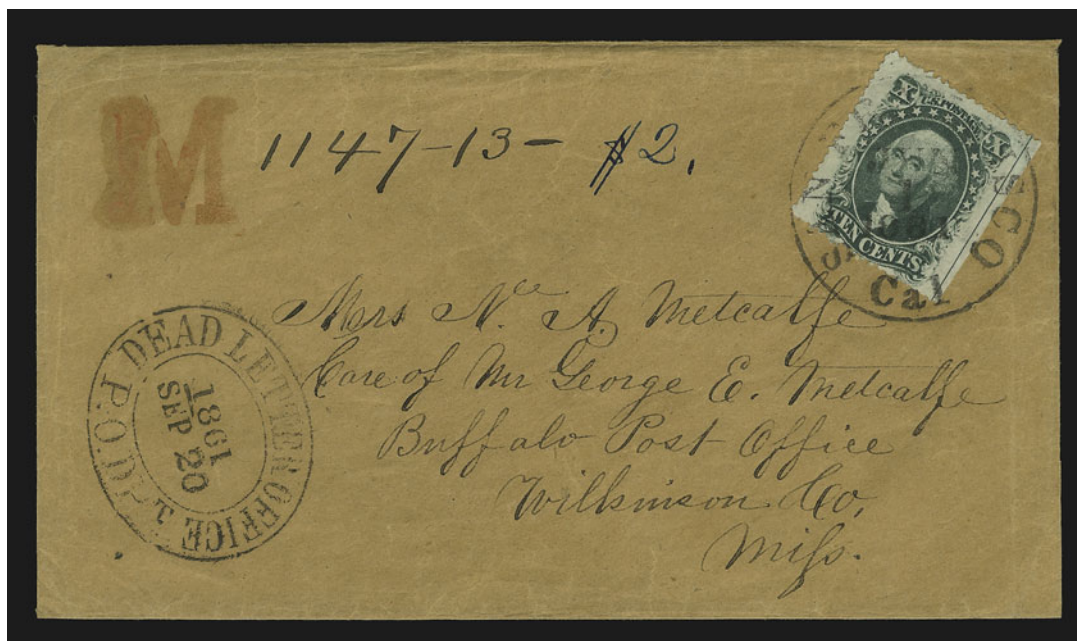 M
1147-13- $2.
U.S. POSTAGE
X X
TEN CENTS
SAN FRANCISCO
Cal
Mrs N. A. Metcalfe
Care of Mr George E. Metcalfe
Buffalo Post Office
Wilkinson Co,
Miſs.
DEAD LETTER OFFICE
P.O.DPT.
1861
SEP 20